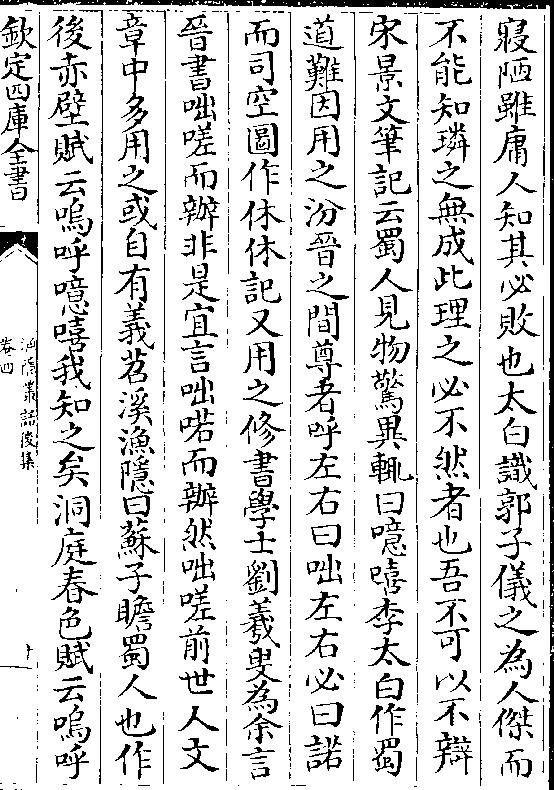 寢陋雖庸人知其必敗也太白識郭子儀之為人傑而
不能知璘之無成此理之必不然者也吾不可以不辯
宋景文筆記云蜀人見物驚異輒曰噫嘻李太白作蜀
道難因用之汾晉之間尊者呼左右曰咄左右必曰諾
而司空圖作休休記又用之修書學士劉羲叟為余言
晉書咄嗟而辦非是宜言咄喏而辦然咄嗟前世人文
章中多用之或自有義苕溪漁隱曰蘇子瞻蜀人也作
後赤壁賦云嗚呼噫嘻我知之矣洞庭春色賦云嗚呼
欽定四庫全書
漁隱叢話後集
卷四
十